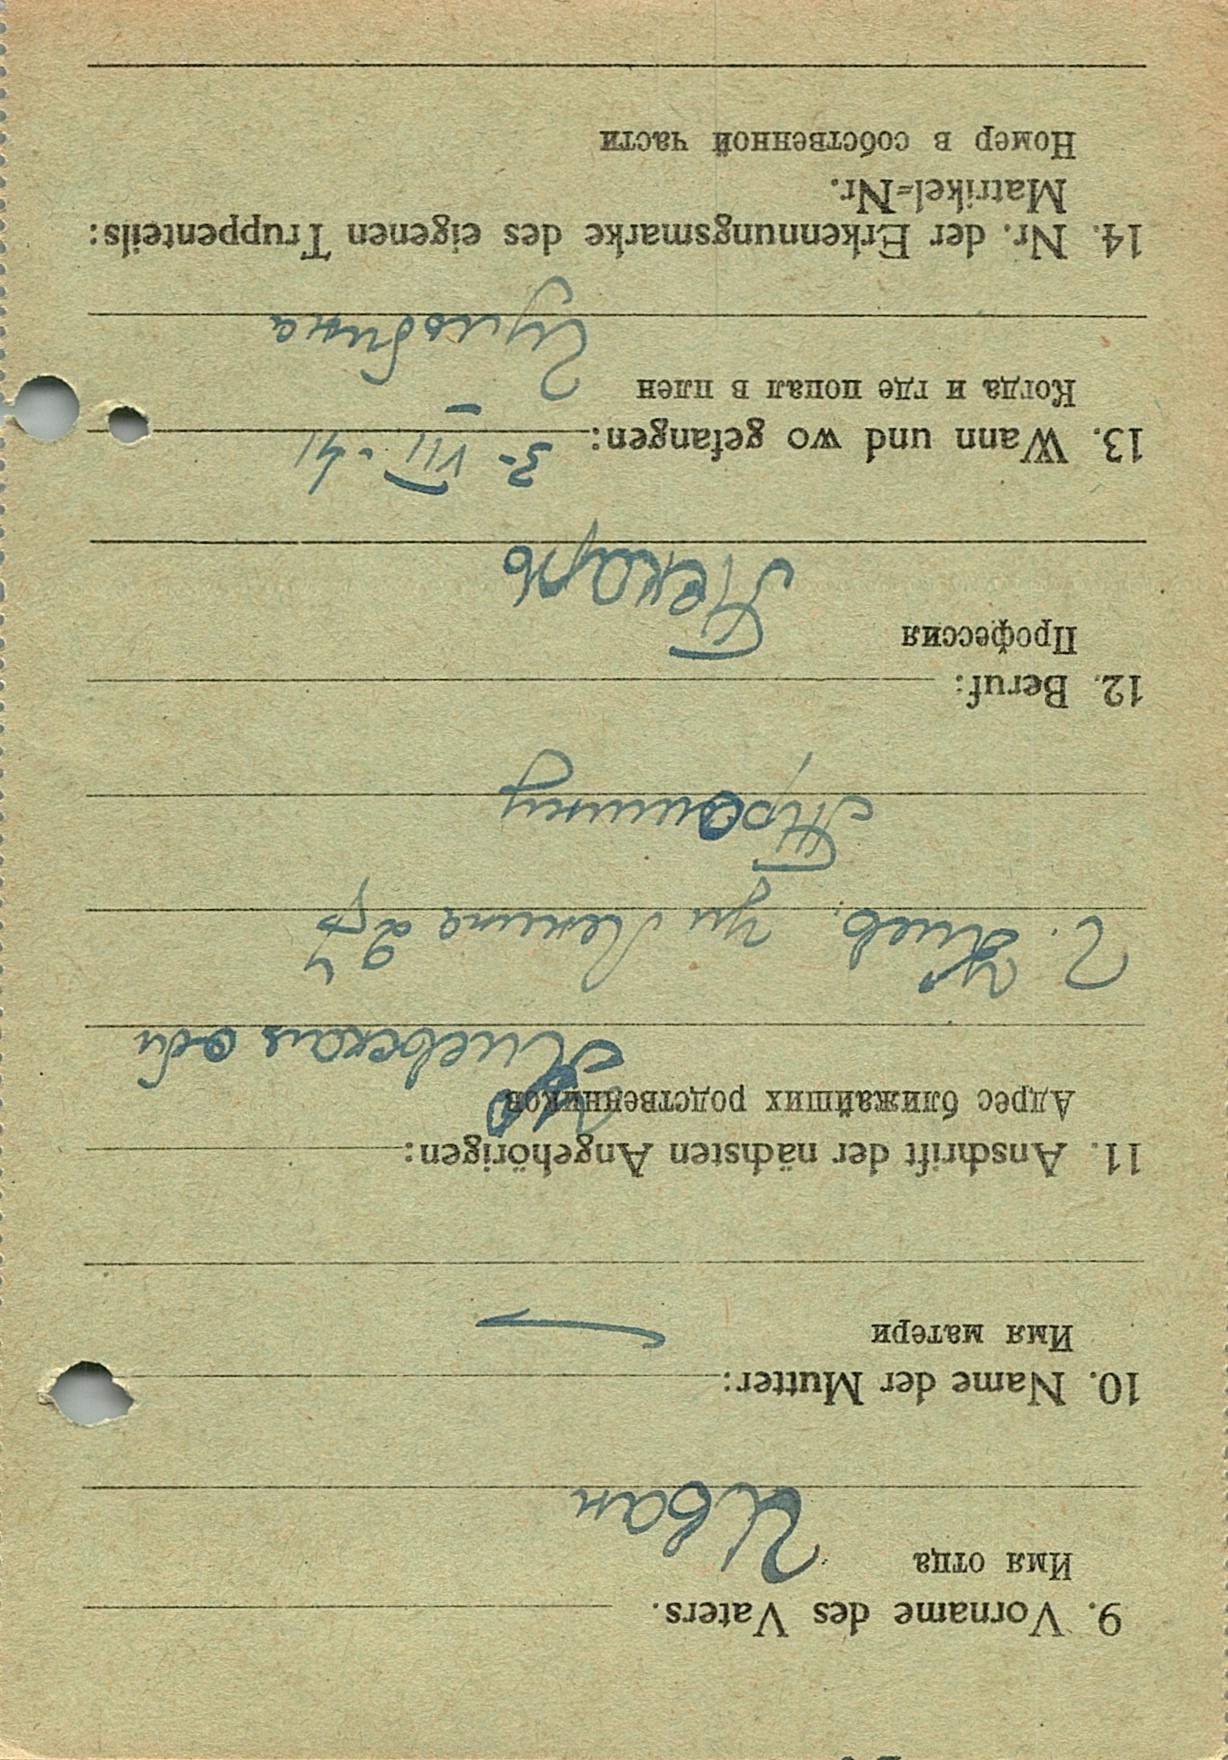 9. Vorname des Vaters.
Имя отца
Иван
10. Name der Mutter:
Имя матери
11. Anschrift der nächsten Angehörigen:
Адрес ближайших родственников
Киевская обл
г. Киев, ул Ленина
12. Beruf:
Профессия
Пекарь
13. Wann und wo gefangen:
3-VII-41
Когда и где попал в плен
14. Nr. der Erkennungsmarke des eigenen Truppenteils:
Matrikel=Nr.
Номер в собственной части